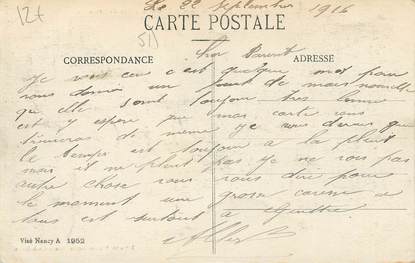 12+
Le 22 septembre 1916
CARTE POSTALE
51
CORRESPONDANCE
ADRESSE
Je vous c'est quelque mot pour
vous donné un de mais nouvelle
qu'elle sont toujour tres bonne
est j'espere que ma carte vous
trouveras de meme je vous
le temps est toujour a la pluit
mais il ne pleut pas je ne vous pas
autre chose vous vous dire pour
le moment une grosse caresse a
tous est surtout a
Albert
Visé Nancy A 1952